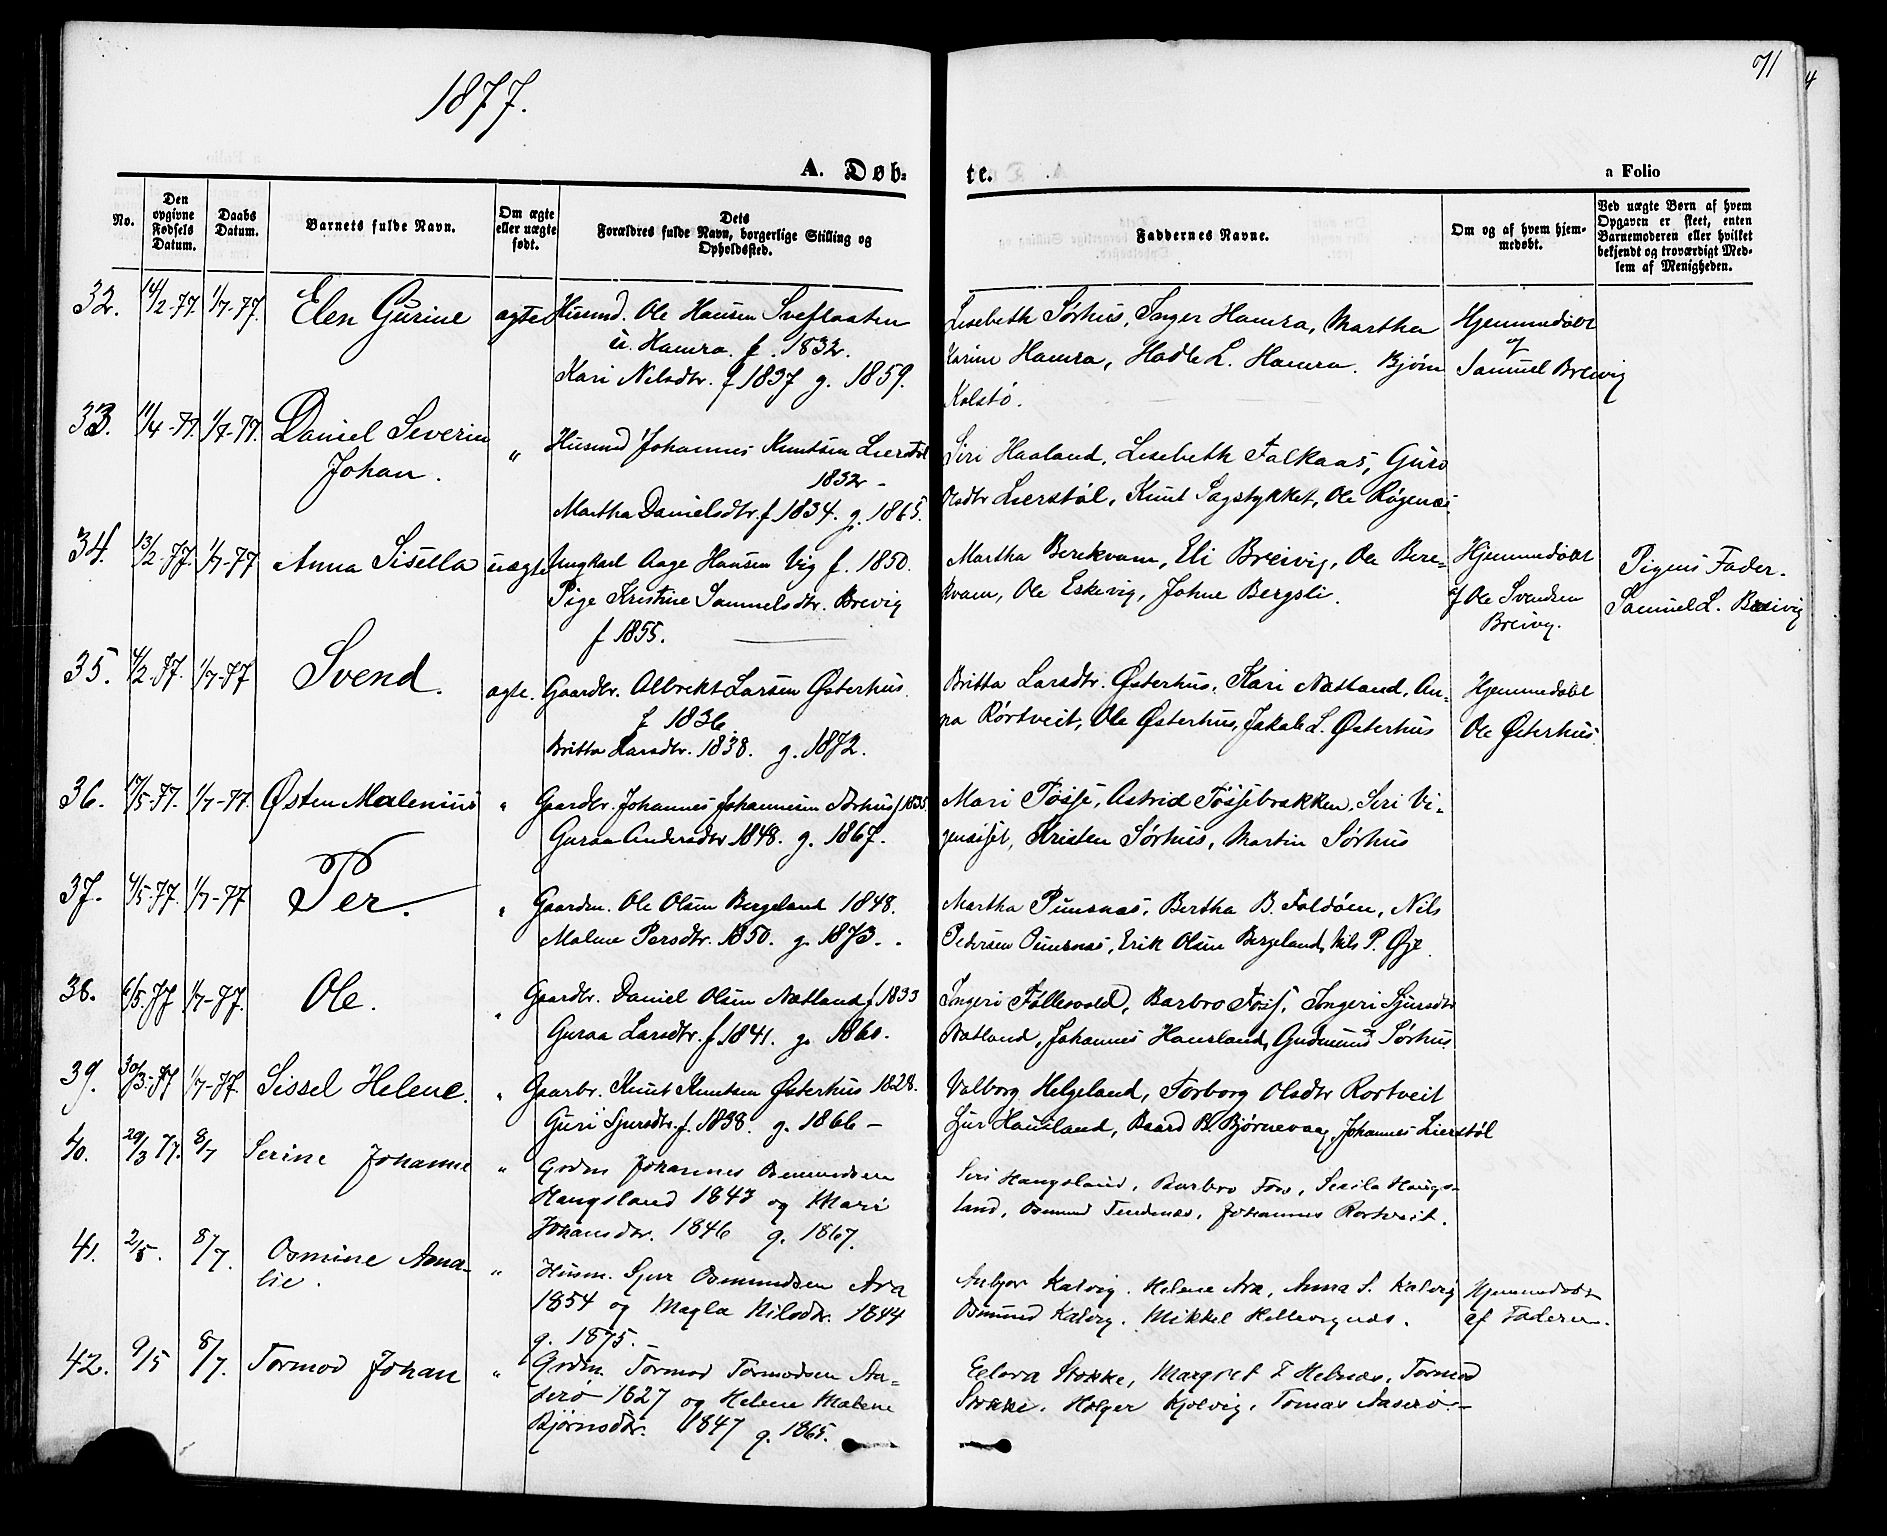 1877.
71
A. Døb=
te.
a Folio
No.
Den
opgivne
Fødsels
Datum.
Daabs
Datum.
Barnets fulde Navn.
Om ægte
eller uægte
født.
Dets
Forældres fulde Navn, borgerlige Stilling og
Opholdssted.
Faddernes Navne.
Om og af hvem hjem-
medøbt.
Ved uægte Børn af hvem
Opgaven er skeet, enten
Barnemoderen eller hvilket
bekjendt og troværdigt Med-
lem af Menigheden.
32. 14/2-77. 1/7-77. Elen Gurine ægte Husmd. Ole Hansen Sveflaaten
u. Hamra. f. 1832.
Kari Nilsdtr. f 1837 g. 1859.
Lisebeth Sørhus, Inger Hamra, Martha
Karine Hamra, Hadle L. Hamra. Bjørn
Kolstø.
Hjemmedøbt
af
Samuel Breivig
33. 11/4-77. 1/7-77. Daniel Severin
Johan.
" Husmd Johannes Knutsen Lierstøl
1832 -
Martha Danielsdtr. f 1834. g. 1865.
Siri Haaland, Lisebeth Falkaas, Guro
Olsdtr Lierstøl, Knut Sagstykket, Ole Røgenes
34. 13/2-77. 1/7-77 Anna Sisella uægte Ungkarl Aage Hansen Vig f. 1850.
Pige Kristine Samuelsdtr. Brevig
f 1855.
Martha Berekvam, Eli Breivig, Ole Bere-
kvam, Ole Eskevig, Johne Bergsli.
Hjemmedøbt
af Ole Svendsen
Breivig.
Pigens Fader.
Samuel L. Breivig
35. 4/2-77. 1/7-77 Svend. ægte. Gaardbr. Albrekt Larsen Østerhus.
f 1836
Britta Larsdtr. 1838. g. 1872.
Britta Larsdtr. Østerhus, Kari Natland, An-
na Rørtveit, Ole Østerhus, Jakob L. Østerhus
Hjemmedøbt
Ole Østerhus.
36. 17/5-77. 1/7-77. Østen Malenius " Gaardbr. Johannes Johannesen Sørhus f 1835.
Guraa Andersdtr 1848. g. 1867.
Mari Tøsse, Astrid Tøssebrækken, Siri Vi-
, Kristen Sørhus, Martin Sørhus
37. 4/5-77. 1/7-77 Per. " Gaardm. Ole Olsen Bergeland 1848.
Malene Persdtr. 1850. g. 1873.
Martha Punsnas, Bertha B. Foldøen, Nils
Pedersen Punsnas, Erik Olsen Bergeland, Nils P. Øye
38. 6/5-77 1/7-77. Ole. " Gaardbr. Daniel Olsen Natland f 1833
Guraa Larsdtr. f 1841. g. 1860.
Ingeri Tøllevold, Barbro , Ingeri Sjursdtr
Natland, Johannes Hausland, Gudmund Sørhus
39. 30/3-77 1/7-77. Sissel Helene. " Gaarbr. Knut Knutsen Østerhus 1828.
Guri Sjursdtr. f. 1838. g. 1866 -
Valborg Helgeland, Torborg Olsdtr Rortveit
Sjur Hausland, Baard B. Bjørnevaag, Johannes Lierstøl
40. 29/3 77. 8/7 Serine Johanne " Grdm Johannes Osmundsen
Haugsland 1847 og Mari
Johansdtr. 1846 g. 1867.
Siri Haugsland, Barbro Fos, Sesila Haugs-
land, Osmund Tindenæs, Johannes Rortveit.
41. 2/5. 8/7. Osmine Ama-
lie.
" Husm. Sjur Osmundsen Ara
1854 og Magla Nilsdtr. 1844
g. 1875.
Anbjor Kalvig. Helene Ara, Anna S. Kalvig
Osmund Kalvig. Mikkel Hellevignæs.
Hjemmedøbt
af Faderen.
42. 9/5 8/7. Tormod Johan " Grdm. Tormod Tormodsen Aa-
serø 1827 og Helene Malene
Bjørnsdtr. 1847 g. 1865.
Elevra Stokke, Margret T Helnæs, Tormod
Stokke. Holger Kjølvig, Tomas Aaserø.